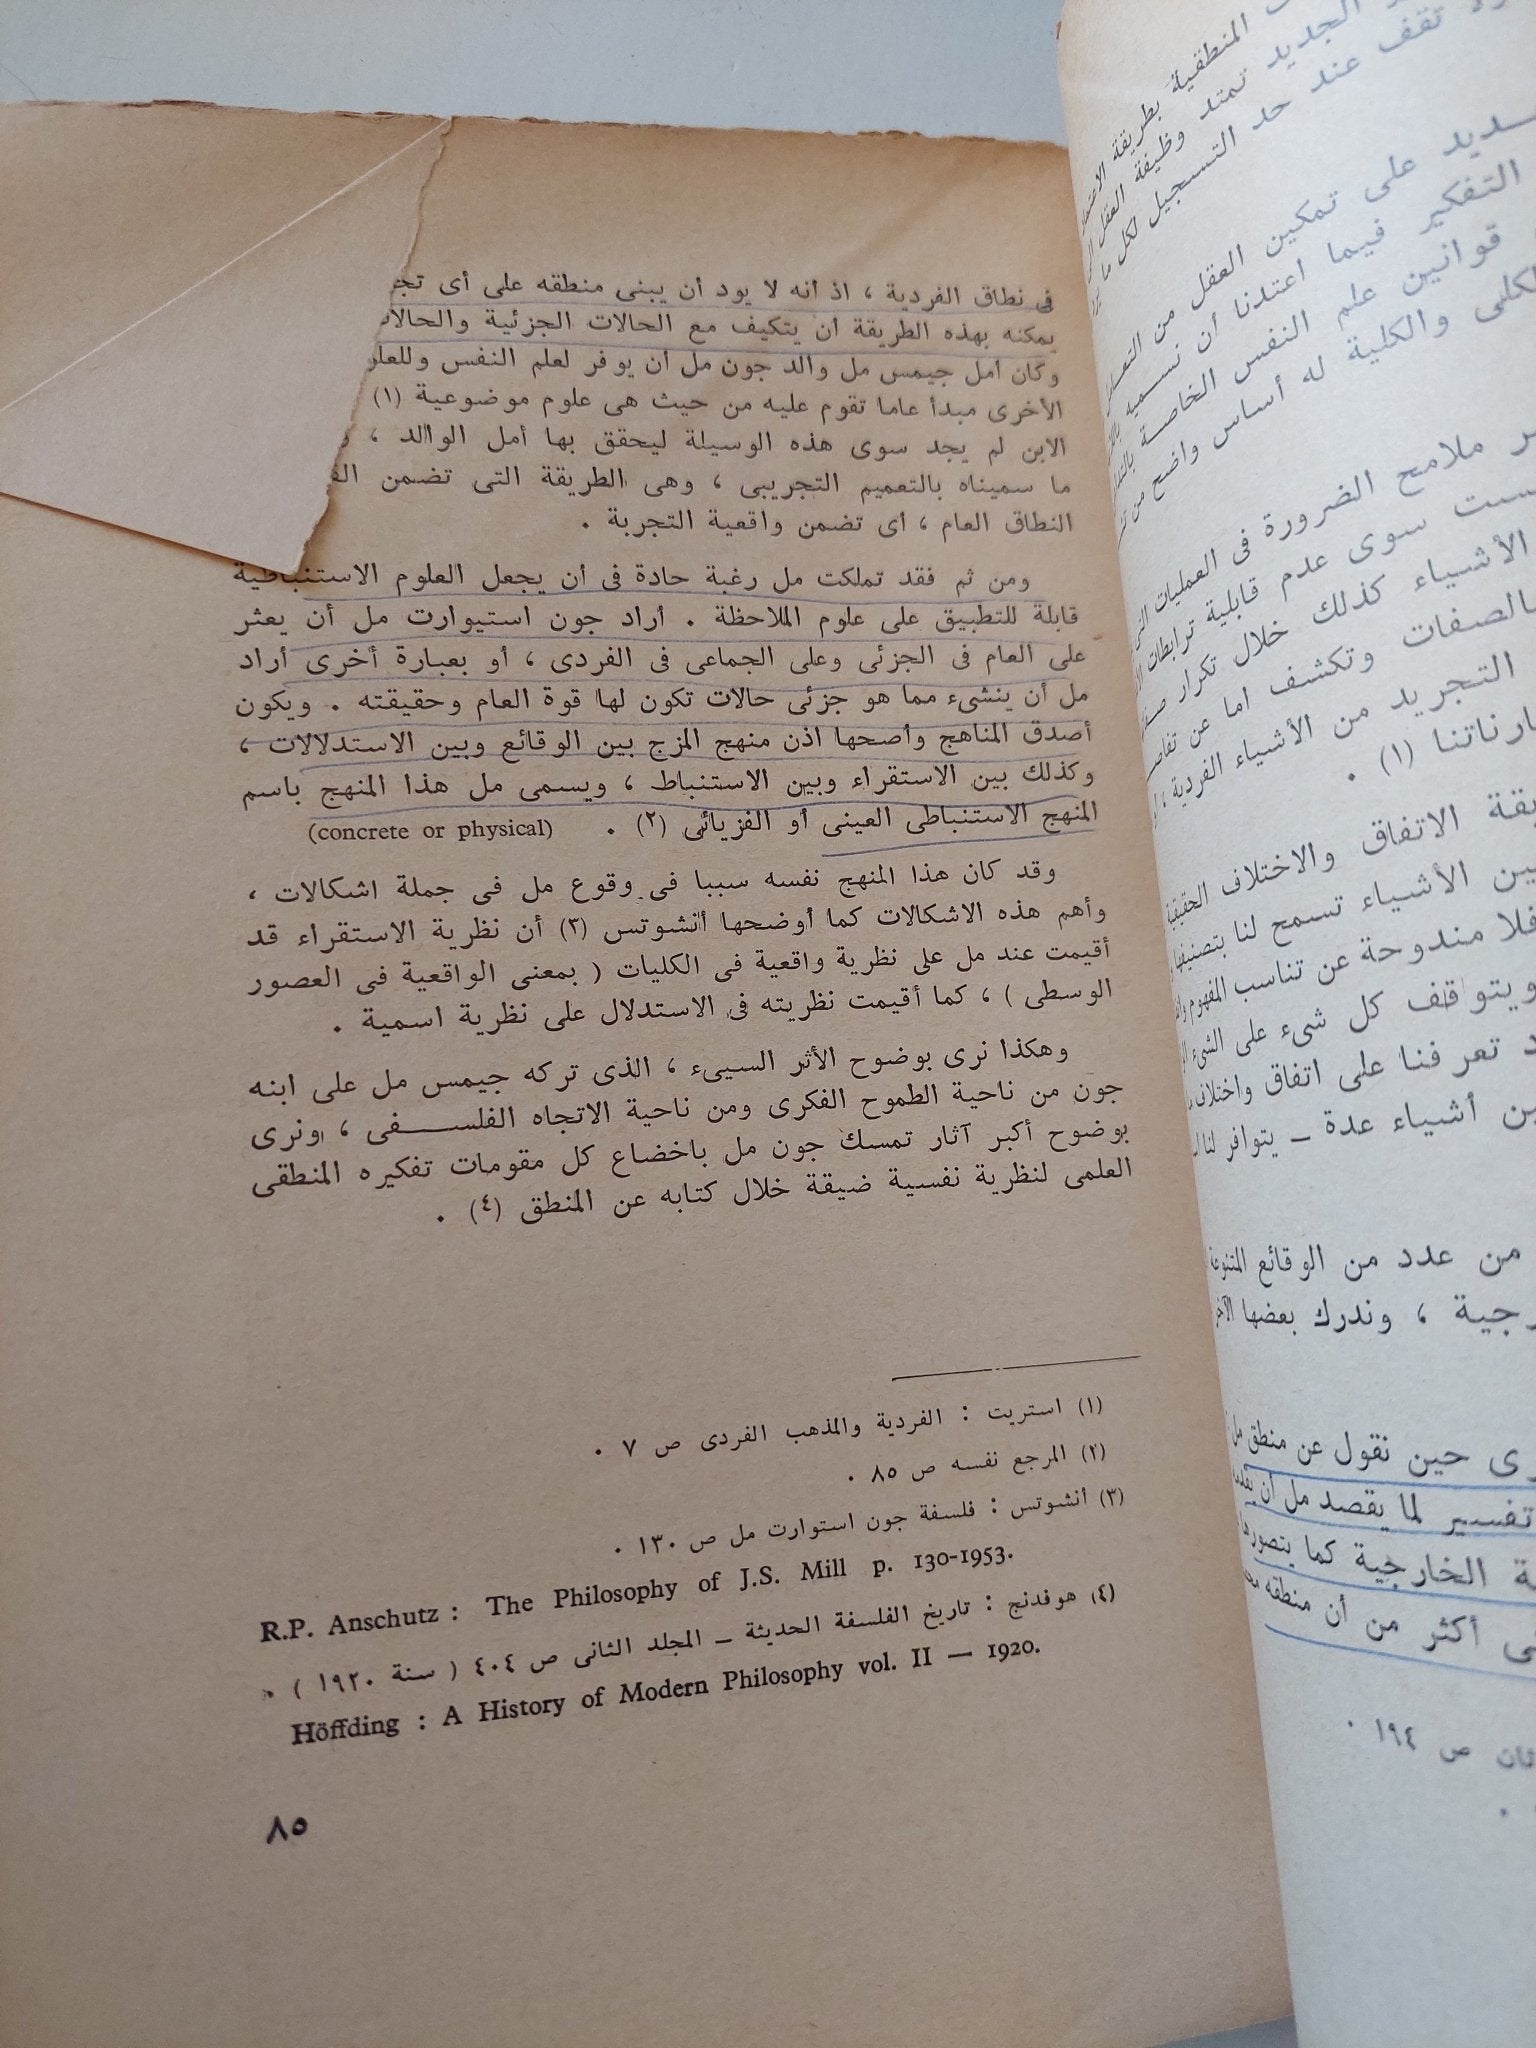 فى نطاق الفردية ، اذ أنه لا يود أن يبنى منطقه على أى
يمكنه بهذه الطريقة أن يتكيف مع الحالات الجزئية
وكان أمل جيمس مل والد جون مل أن يوفر لعلم النفس
الأخرى مبدأ عاما تقوم عليه من حيث هى علوم موضوعية (١)
الابن لم يجد سوى هذه الوسيلة ليحقق بها أمل الوالد ،
ما سميناه بالتعميم التجريبى ، وهى الطريقة التى تضمن
النطاق العام ، أى تضمن واقعية التجربة .
ومن ثم فقد تملكت مل رغبة حادة فى أن يجعل العلوم الاستنباطية
قابلة للتطبيق على علوم الملاحظة . أراد جون استيوارت مل أن يعثر
على العام فى الجزئى وعلى الجماعى فى الفردى ، أو بعبارة أخرى أراد
مل أن ينشىء مما هو جزئى حالات تكون لها قوة العام وحقيقته . ويكون
أصدق المناهج وأصحها اذن منهج المزج بين الوقائع وبين الاستدلالات ،
وكذلك بين الاستقراء وبين الاستنباط ، ويسمى مل هذا المنهج باسم
المنهج الاستنباطى العينى أو الفزيائى (٢) . (concrete or physical)
وقد كان هذا المنهج نفسه سببا فى وقوع مل فى جملة اشكالات ،
وأهم هذه الاشكالات كما أوضحها أنشوتس (٣) أن نظرية الاستقراء قد
أقيمت عند مل على نظرية واقعية فى الكليات ( بمعنى الواقعية فى العصور
الوسطى ) ، كما أقيمت نظريته فى الاستدلال على نظرية اسمية .
وهكذا نرى بوضوح الأثر السيىء ، الذى تركه جيمس مل على ابنه
جون من ناحية الطموح الفكرى ومن ناحية الاتجاه الفلســــفى ، ونرى
بوضوح أكبر آثار تمسك جون مل باخضاع كل مقومات تفكيره المنطقى
العلمى لنظرية نفسية ضيقة خلال كتابه عن المنطق (٤) .
(١) استريت : الفردية والمذهب الفردى ص ٧ .
(٢) المرجع نفسه ص ٨٥ .
(٣) أنشوتس : فلسفة جون استوارت مل ص ١٣٠ .
R.P. Anschutz : The Philosophy of J.S. Mill p. 130-1953.
(٤) هوفدنج : تاريخ الفلسفة الحديثة ــ المجلد الثانى ص ٤٠٤ ( سنة ١٩٢٠ ) .
Höffding : A History of Modern Philosophy vol. II — 1920.
٨٥
المنطقية بطريقة
الجديد تمتد وظيفة العقل
تقف عند حد التسجيل لكل ما
على تمكين العقل من
التفكير فيما اعتدنا أن نسميه
قوانين علم النفس الخاصة
والكلية له أساس واضح من
ملامح الضرورة فى العمليات
سوى عدم قابلية ترابطات
الأشياء كذلك خلال تكرار
وتكشف اما عن
التجريد من الأشياء الفردية ،
(١) .
الاتفاق والاختلاف
بين الأشياء تسمح لنا بتصنيفها
فلا مندوحة عن تناسب المفهوم
ويتوقف كل شىء على الشىء
تعرفنا على اتفاق واختلاف
أشياء عدة ــ يتوافر لنا
من عدد من الوقائع المتنوعة
، وندرك بعضها
حين نقول عن منطق مل
تفسير لما يقصد مل أن
الخارجية كما يتصورها
أكثر من أن منطقه
ص ١٩٤ .